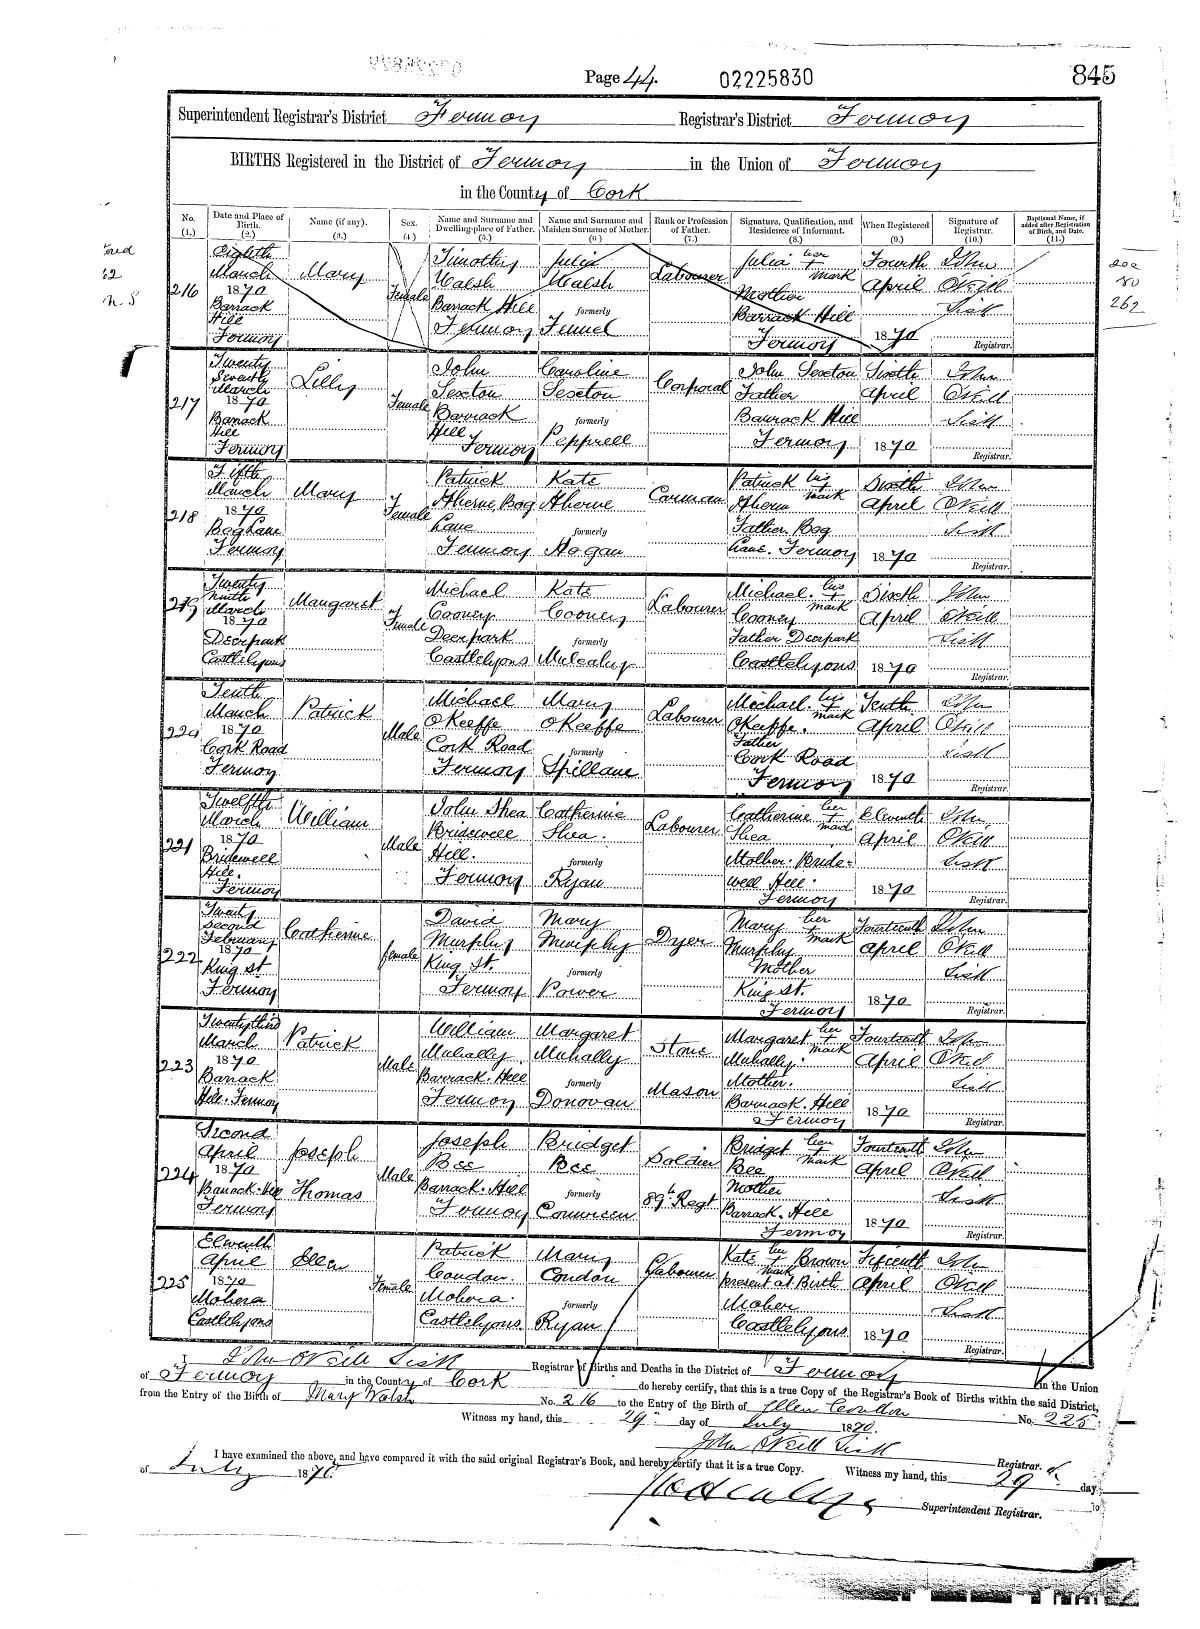 Page 44. 02225830 845
Superintendent Registrar's District Fermoy Registrar's District Fermoy
BIRTHS Registered in the District of Fermoy in the Union of Fermoy
in the County of Cork
No. (1.) Date and Place of Birth. (2.) Name (if any). (3.) Sex. (4.) Name and Surname and Dwelling-place of Father. (5.) Name and Surname and Maiden Surname of Mother. (6.) Rank or Profession of Father. (7.) Signature, Qualification, and Residence of Informant. (8.) When Registered (9.) Signature of Registrar. (10.) Baptismal Name, if added after Registration of Birth, and Date. (11.)
Eighth Timothy Julia Julia her Fourth John
March Mary Walsh Walsh Labourer + mark April O'Neill
216 1870 Female Mother
Barrack Barrack Hill formerly Barrack Hill Sisk
Hill
Fermoy Fermoy Fennel Fermoy 1870 Registrar.
262
Twenty John Caroline John Sexton Sixth John
Seventh Lilly Corporal
March Sexton Sexton Father April O'Neill
217 1870 Female
Barrack Barrack formerly Barrack Hill Sisk
Hill Hill
Fermoy Fermoy Pepprell Fermoy 1870 Registrar.
Fifth Patrick Kate Patrick his Sixth John
March Mary Aherne Bog Aherne Carman + mark April O'Neill
218 1870 Female Lane Ahern
Bog Lane formerly Father Bog Sisk
Fermoy Fermoy Hogan Lane. Fermoy 1870 Registrar.
Twenty Michael Kate Michael. his Sixth John
Ninth Margaret Labourer + mark
219 March Female Cooney Cooney Cooney April O'Neill
1870
Deerpark Deerpark formerly Father Deerpark Sisk
Castlelyons Castlelyons Mulcahy Castlelyons 1870 Registrar.
Tenth Michael Mary Michael. his Tenth John
March Patrick O'Keeffe O'Keeffe Labourer + mark O'Keeffe. April O'Neill
1870 Male Father
Cork Road Cork Road formerly Cork Road Sisk
Fermoy Fermoy Spillane Fermoy 1870 Registrar.
Twelfth John Shea Catherine Catherine her Eleventh John
March William Labourer +
221 1870 Male Bridewell Shea. Shea April O'Neill
Bridewell Hill. formerly Mother. Bride- Sisk
Hill. well Hill.
Fermoy Fermoy Ryan Fermoy 1870 Registrar.
Twenty David Mary Mary her Fourteenth John
Second Catherine Dyer + mark
February Murphy Murphy Murphy April O'Neill
222 1870 female Mother
King St King St. formerly King St. Sisk
Fermoy Fermoy Power Fermoy 1870 Registrar.
Twentythird William Margaret Margaret her Fourteenth John
March Patrick Stone + mark
223 1870 Male Mulhally. Mulhally Mulhally. April O'Neill
Barrack Barrack. Hill formerly Mason Mother. Sisk
Hill. Fermoy Fermoy Donovan Barrack. Hill Fermoy 1870 Registrar.
Second Joseph Bridget Bridget her Fourteenth John
April Joseph Soldier + mark
224 1870 Male Bee Bee Bee April O'Neill
Barrack. Hill Thomas Barrack. Hill formerly 89th Regt Mother Sisk
Fermoy Fermoy Barrack. Hill Fermoy 1870 Registrar.
Eleventh Patrick Mary Kate her Brown Fifteenth John
April Ellen Labourer + mark
225 1870 Female Condon. Condon present at Birth April O'Neill
Mohera Mohera. formerly Moher Sisk
Castlelyons Castlelyons. Ryan Castlelyons 1870 Registrar.
I John O'Neill Sisk Registrar of Births and Deaths in the District of Fermoy in the Union
of Fermoy in the County of Cork do hereby certify, that this is a true Copy of the Registrar's Book of Births within the said District,
from the Entry of the Birth of Mary Walsh No. 216 to the Entry of the Birth of Ellen Condon No. 225.
Witness my hand, this 29 day of July 1870.
John O'Neill Sisk Registrar.
I have examined the above, and have compared it with the said original Registrar's Book, and hereby certify that it is a true Copy. Witness my hand, this 29 day
of July 1870
Superintendent Registrar.